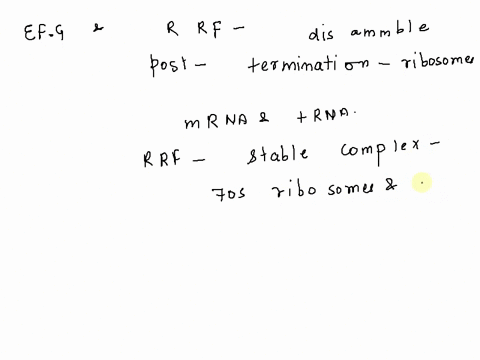 EF-G & RRF - dis ammble
post - termination - ribosomes
mRNA & tRNA.
RRF - stable complex -
70s ribosomes &